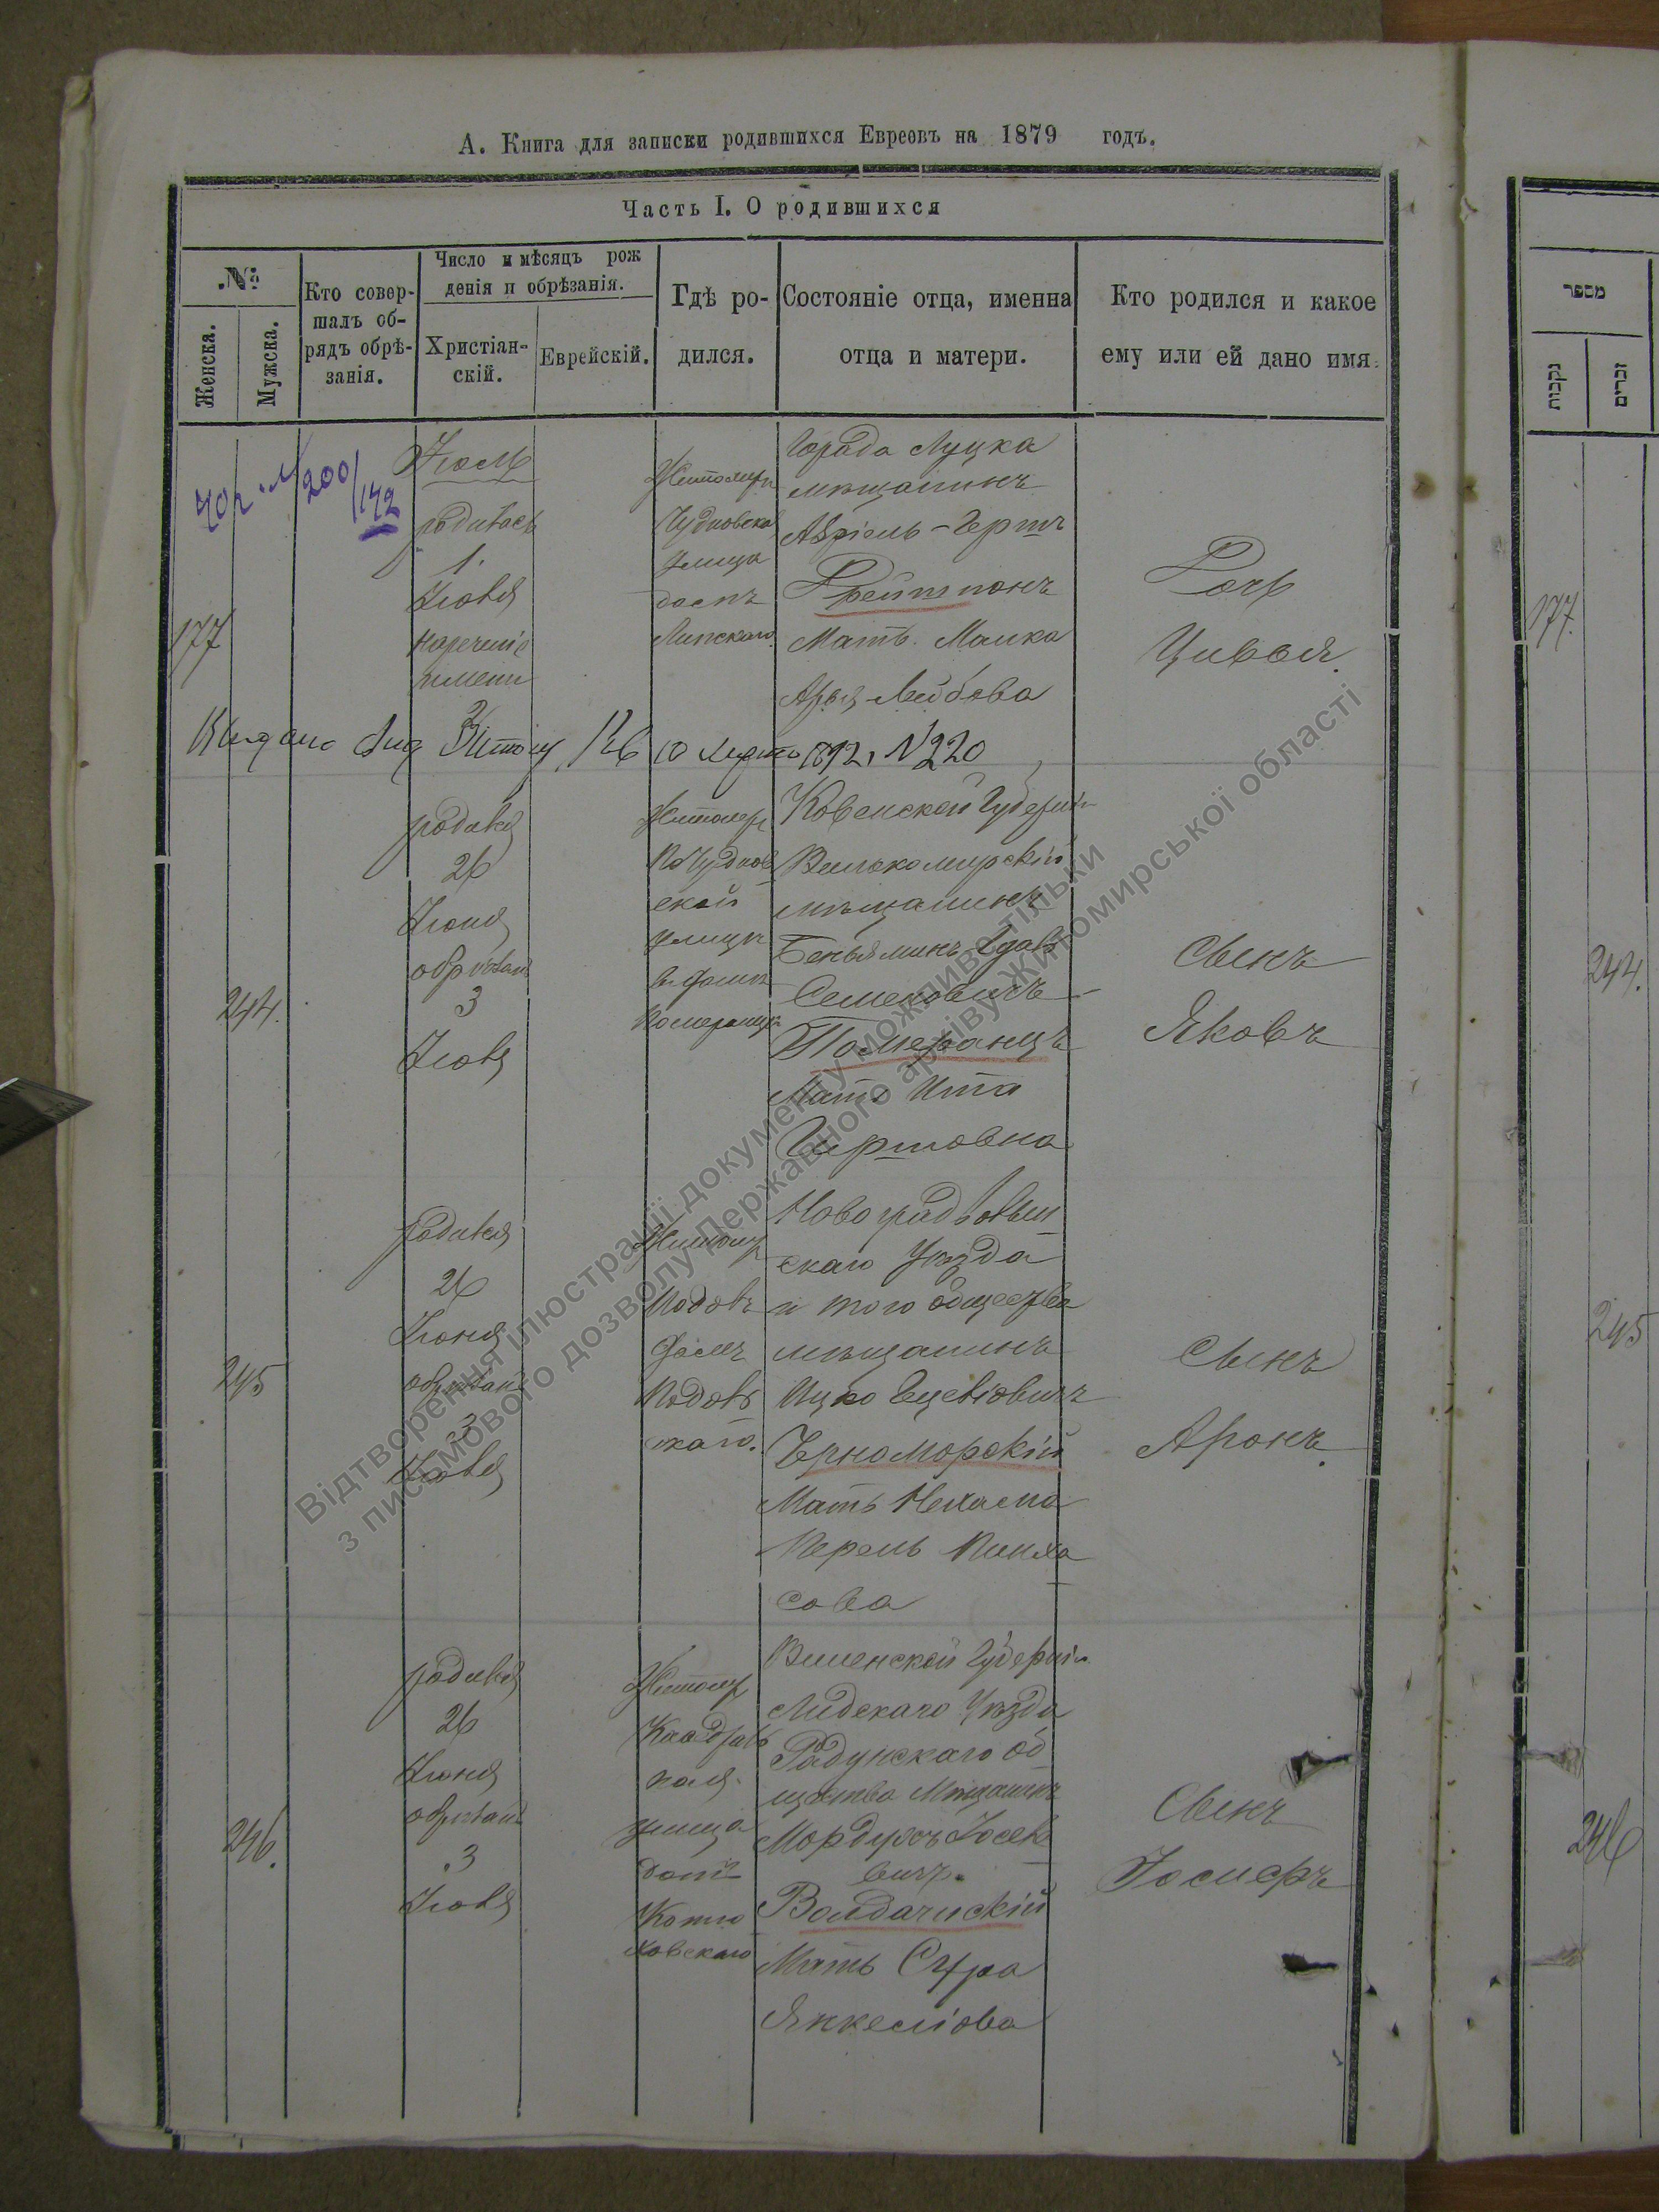 А. Книга для записки родившихся Евреевъ на 1879 годъ.
Часть I. О родившихся
№
Женска.
Мужска.
Кто совер-
шалъ об-
рядъ обрѣ-
занія.
Число и мѣсяцъ рож
денія и обрѣзанія.
Христіан-
скій.
Еврейскій.
Гдѣ ро-
дился.
Состояніе отца, именна
отца и матери.
Кто родился и какое
ему или ей дано имя.
מספר
נקבות
זכרים
200/142
177
Іюль
родилась
1
Іюля
нареченіе
имени
3
Житомір
Чудновская
улица
домъ
Липскаго
Города Луцка
мѣщанинъ
Герш
Мать Малка
Арья-Лейбова
Дочь
Цивья
177.
10 1892, №220
244.
родился
26
Іюня
обрѣзанъ
3
Іюля
Житомір
По Чуднов
ской
улицѣ
в. домѣ
Померанца
Ковенской Губерніи
Вилькомирскій
мѣщанинъ
Беньяминъ
Семеновичъ
Померанцъ
Мать Ита
Гершовна
Сынъ
Яковъ
244.
245
родился
26
Іюня
обрѣзанъ
3
Іюля
Житомір
домъ
скаго.
Новоградволын
скаго Уѣзда
и того общества
мѣщанинъ
Ицко
Черноморскій
Мать Нехама
Перель Пинха
сова
Сынъ
Аронъ.
245
246.
родился
26
Іюня
обрѣзанъ
3
Іюля
Житомір
улица
домъ
Котлю
ховскаго
Виленской Губерніи
Лидскаго Уѣзда
Радунскаго об
щества Мѣщанинъ
Мордухъ Іосев
вичъ.
Мать Сура
Янкеліова
Сынъ
Іосиеръ
246
Відтворення ілюстрації документу можливе тільки
з письмового дозволу Державного архіву Житомирської області